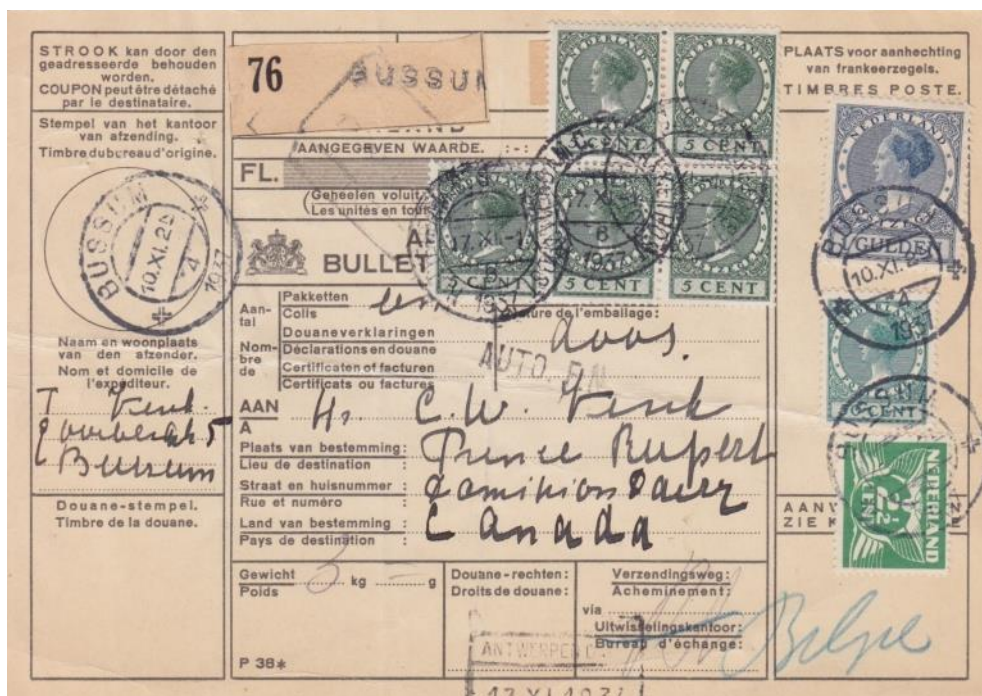 STROOK kan door den
geadresseerde behouden
worden.
COUPON peut être détaché
par le destinataire.
Stempel van het kantoor
van afzending.
Timbre du bureau d'origine.
BUSSUM
10.XI.29
4
1937
Naam en woonplaats
van den afzender.
Nom et domicile de
l'expéditeur.
Bussum
Douane-stempel.
Timbre de la douane.
76
BUSSUM
AANGEGEVEN WAARDE. :-:
FL.
(Geheelen voluit
Les unités en tou
BULLET
Aan-
tal
Nom-
bre
de
Pakketten
Colis
Douaneverklaringen
Déclarations en douane
Certificaten of facturen
Certificats ou factures
ture de l'emballage:
doos.
AUTO.
AAN
A
Hr C. W. Venk
Plaats van bestemming:
Lieu de destination :
Prince Rupert
Straat en huisnummer :
Rue et numéro :
Dominion Dairy
Land van bestemming :
Pays de destination :
Canada
Gewicht
Poids
3 kg — g
Douane-rechten:
Droits de douane:
Verzendingsweg:
Acheminement:
via
Uitwisselingskantoor:
Bureau d'échange:
Belgie
ANTWERPEN
17 XI 1937
P 38*
NEDERLAND
5 CENT
NEDERLAND
5 CENT
CENT
5 CENT
5 CENT
17.XI
6
1937
PLAATS voor aanhechting
van frankeerzegels.
TIMBRES POSTE.
NEDERLAND
GULDEN
BUSSUM
10.XI.29
4
1937
CENT
NEDERLAND
2½
CENT
AANV
ZIE K